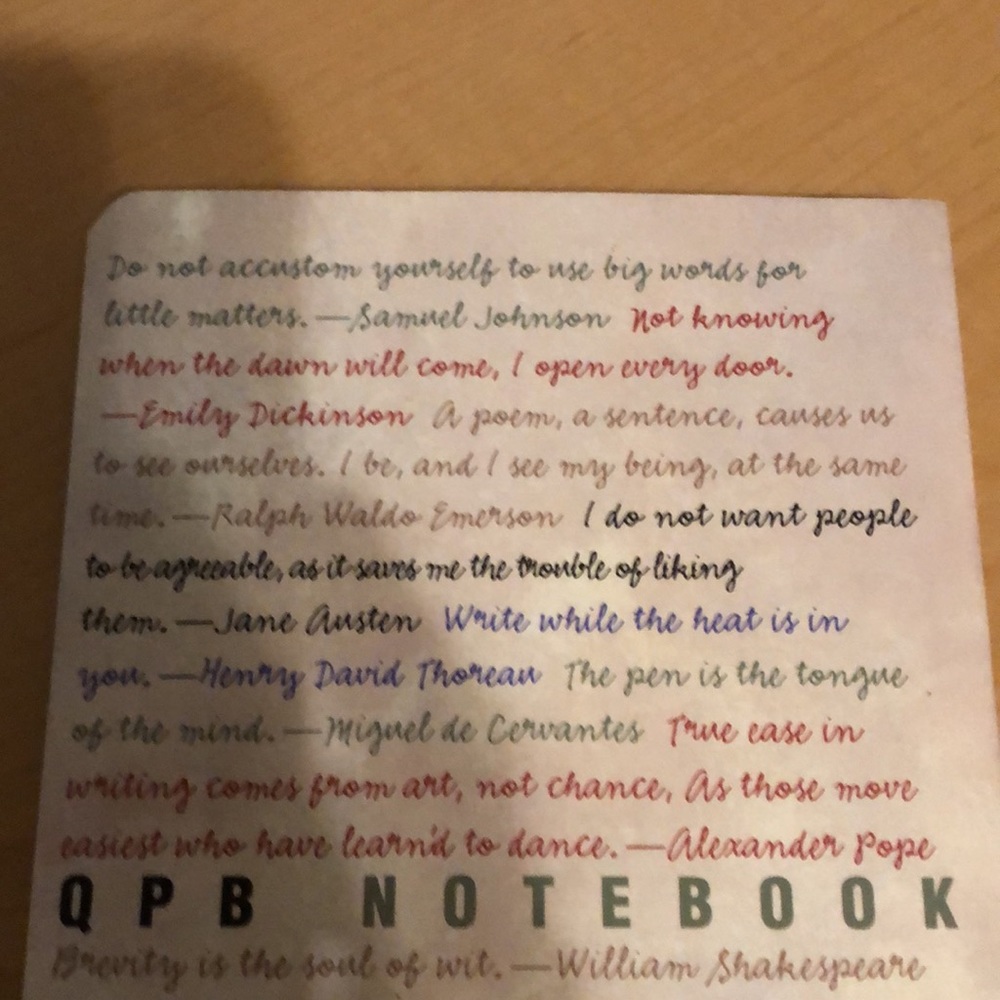 Do not accustom yourself to use big words for
little matters. —Samuel Johnson Not knowing
when the dawn will come, I open every door.
—Emily Dickinson A poem, a sentence, causes us
to see ourselves. I be, and I see my being, at the same
time. —Ralph Waldo Emerson I do not want people
to be agreeable, as it saves me the trouble of liking
them. —Jane Austen Write while the heat is in
you. —Henry David Thoreau The pen is the tongue
of the mind. —Miguel de Cervantes True ease in
writing comes from art, not chance, As those move
easiest who have learn'd to dance. —Alexander Pope
QPB NOTEBOOK
Brevity is the soul of wit. —William Shakespeare